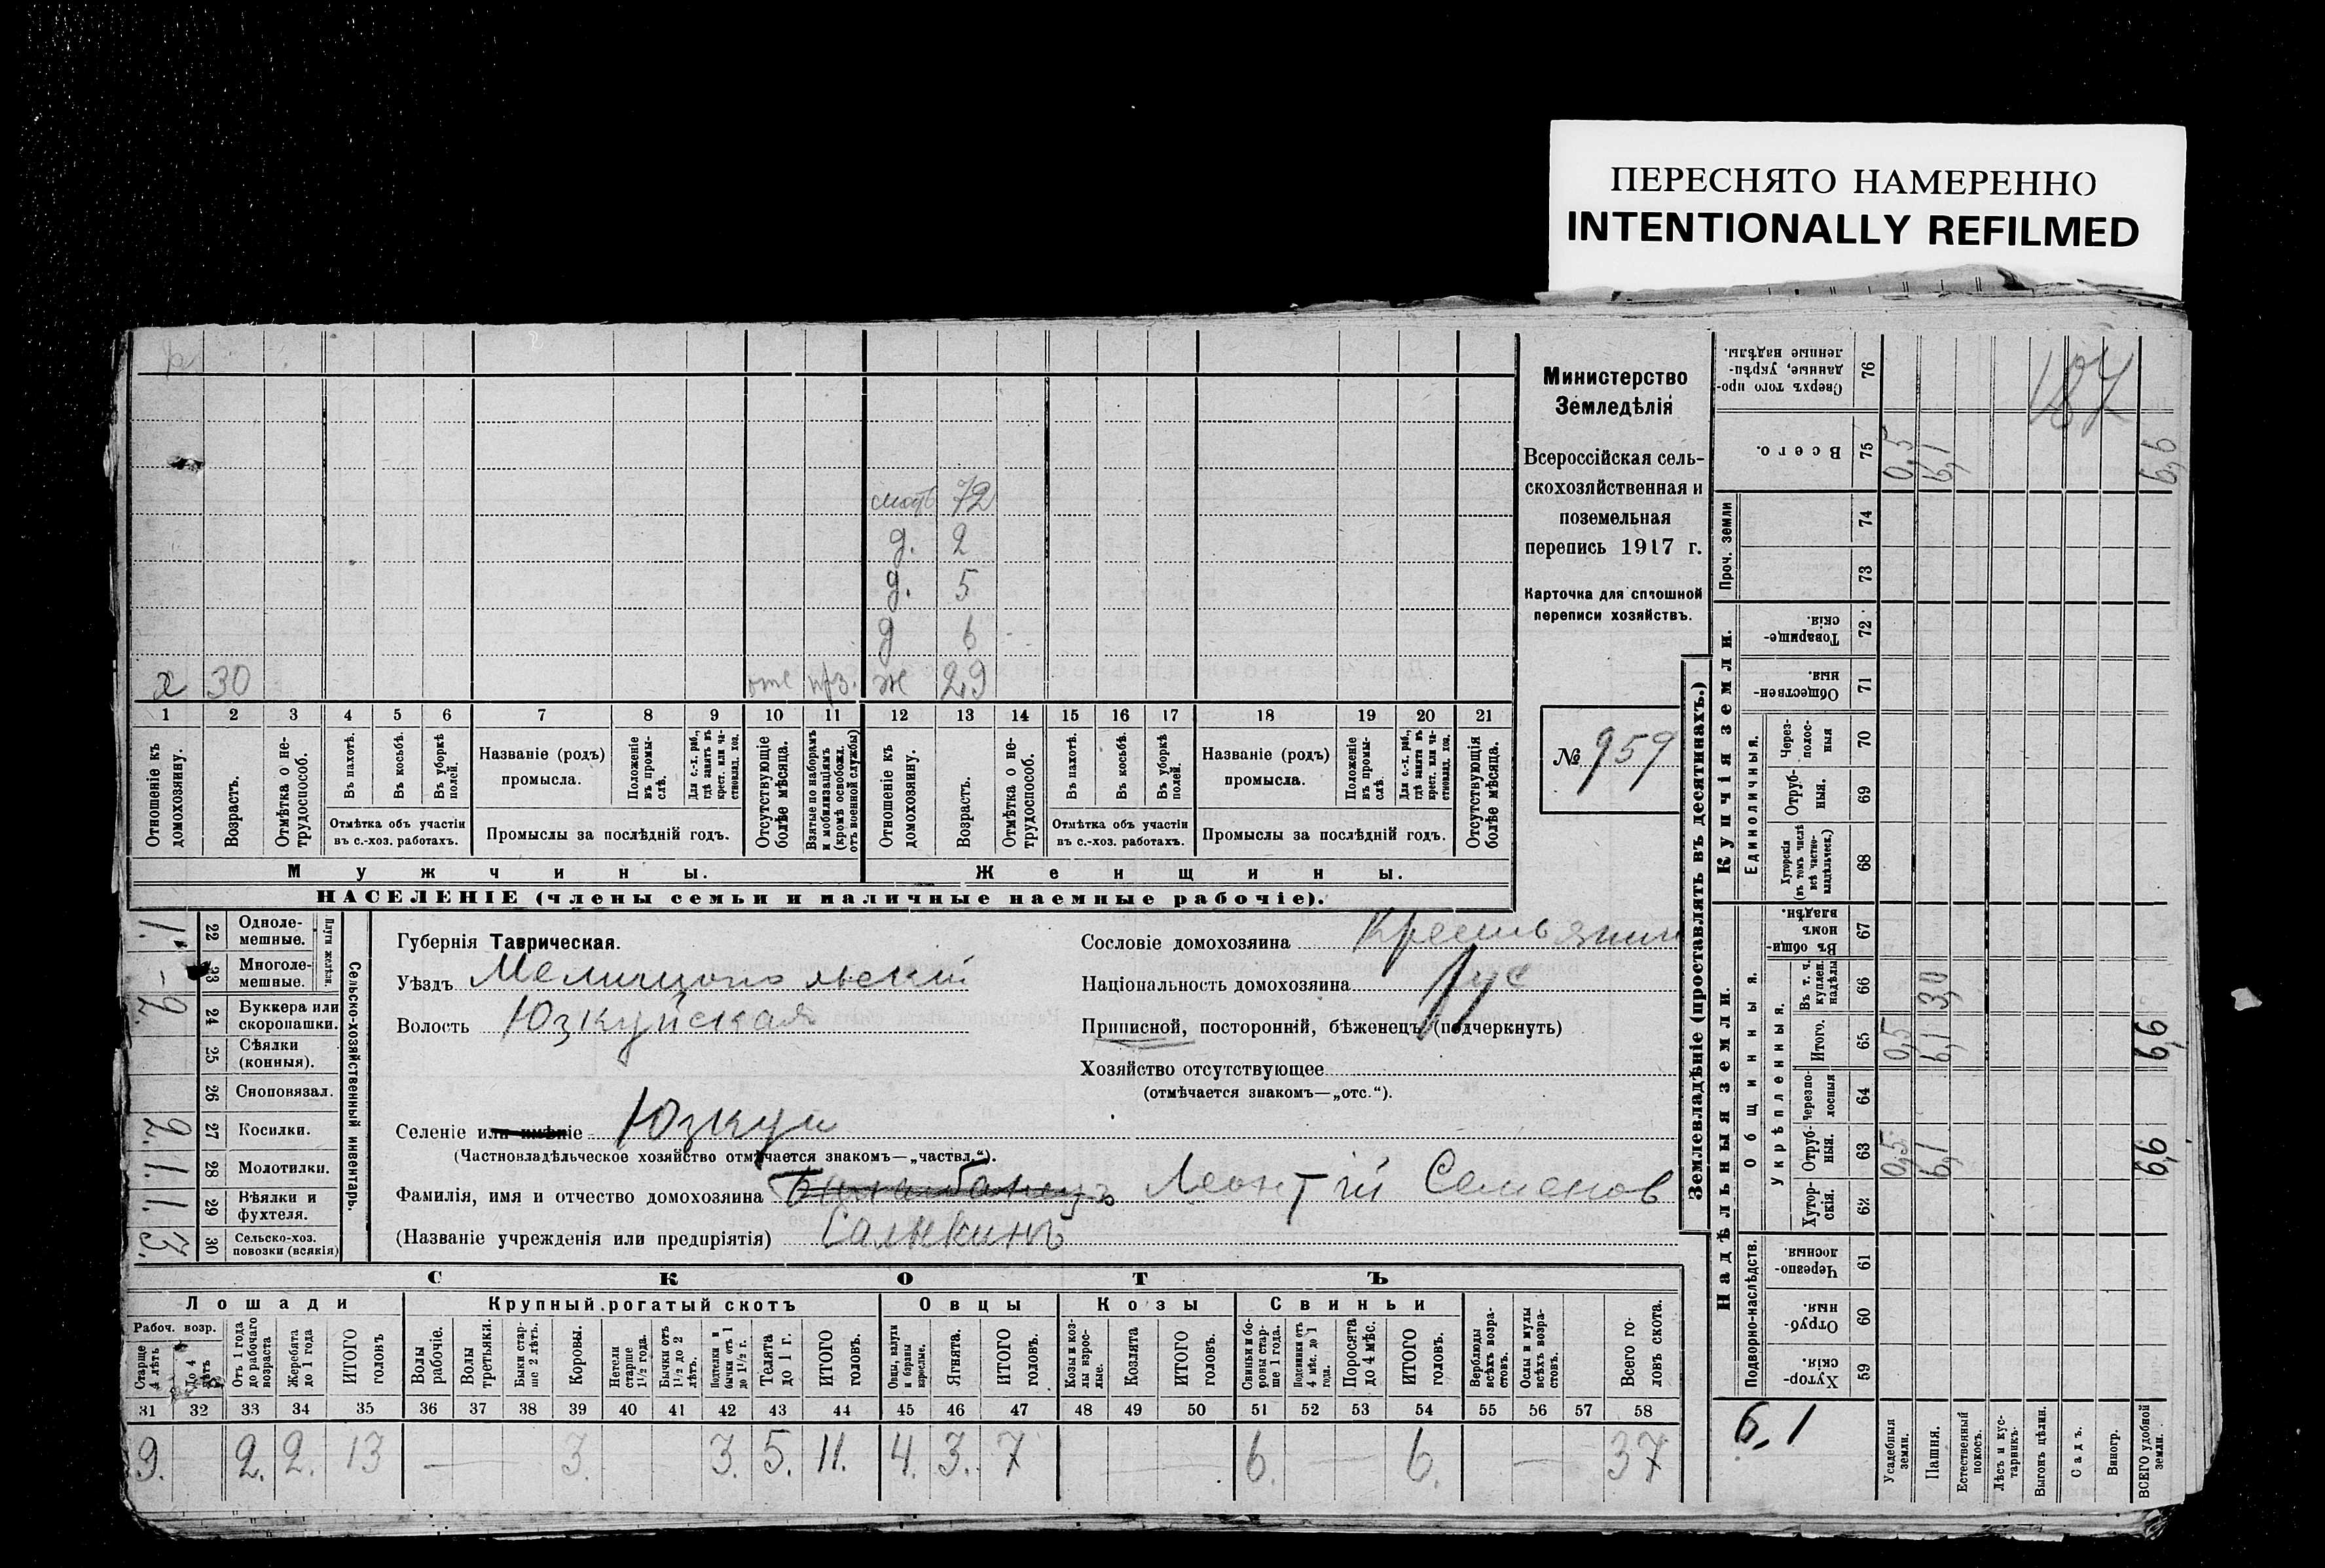 ПЕРЕСНЯТО НАМЕРЕННО
INTENTIONALLY REFILMED
Министерство
Земледѣлія
Всероссійская сель-
скохозяйственная и
поземельная
перепись 1917 г.
Карточка для сплошной
переписи хозяйствъ.
№ 959
мать 72
д. 2
д. 5
д 6
х 30 отс ж 29
1 2 3 4 5 6 7 8 9 10 11 12 13 14 15 16 17 18 19 20 21
Отношеніе къ домохозяину.
Возрастъ.
Отмѣтка о не-трудоспособ.
Въ пахотѣ.
Въ косьбѣ.
Въ уборкѣ полей.
Отмѣтка объ участіи
въ с.-хоз. работахъ.
Названіе (родъ)
промысла.
Положеніе въ промы-слѣ.
Для с.-х. раб., гдѣ занятъ въ крест. или ча-стновлад. хоз.
Промыслы за послѣдній годъ.
Отсутствующіе болѣе мѣсяца.
Взятые по наборамъ и мобилизаціямъ (кромѣ освобожд. отъ военной службы)
Отношеніе къ домохозяину.
Возрастъ.
Отмѣтка о не-трудоспособ.
Въ пахотѣ.
Въ косьбѣ.
Въ уборкѣ полей.
Отмѣтка объ участіи
въ с.-хоз. работахъ.
Названіе (родъ)
промысла.
Положеніе въ промы-слѣ.
Для с.-х. раб., гдѣ занята въ крест. или ча-стновлад. хоз.
Промыслы за послѣдній годъ.
Отсутствующія болѣе мѣсяца.
Мужчины. Женщины.
НАСЕЛЕНІЕ (члены семьи и наличные наемные рабочіе).
Сельско-хозяйственный инвентарь.
Плуги желѣзн.
1. 22 Одноле-мешные.
- 23 Многоле-мешные.
2. 24 Буккера или скоропашки.
25 Сѣялки (конныя).
26 Сноповязал.
2. 27 Косилки.
1. 28 Молотилки.
1. 29 Вѣялки и фухтеля.
3. 30 Сельско-хоз. повозки (всякія)
Губернія Таврическая.
Уѣздъ Мелитопольскій
Волость Юзкуйская
Селеніе или имѣніе Юзкуи
(Частновладѣльческое хозяйство отмѣчается знакомъ—„частвл.“).
Фамилія, имя и отчество домохозяина Леонтій Семенов
(Названіе учрежденія или предпріятія) Салькинъ
Сословіе домохозяина Крестьянин
Національность домохозяина Рус
Приписной, посторонній, бѣженецъ (подчеркнуть)
Хозяйство отсутствующее
(отмѣчается знакомъ—„отс.“).
СКОТЪ
Лошади Крупный рогатый скотъ Овцы Козы Свиньи
Рабоч. возр.
Старше 4 лѣтъ
До 4 лѣтъ
Отъ 1 года до рабочаго возраста
Жеребята до 1 года
ИТОГО головъ
Волы рабочіе.
Волы третьяки.
Быки стар-ше 2 лѣтъ.
Коровы.
Нетели старше 1½ года.
Бычки отъ 1½ до 2 лѣтъ.
Подтелки и бычки отъ 1 до 1½ г.
Телята до 1 г.
ИТОГО головъ.
Овцы, валухи и бараны взрослые.
Ягнята.
ИТОГО головъ.
Козы и коз-лы взрос-лые.
Козлята
ИТОГО головъ.
Свиньи и бо-ровы стар-ше 1 года.
Подсвинки отъ 4 мѣс. до 1 года.
Поросята до 4 мѣс.
ИТОГО головъ.
Верблюды всѣхъ возра-стовъ.
Ослы и мулы всѣхъ возра-стовъ.
Всего го-ловъ скота.
31 32 33 34 35 36 37 38 39 40 41 42 43 44 45 46 47 48 49 50 51 52 53 54 55 56 57 58
9. 2. 2. 13 — 3. 3. 5. 11. 4. 3. 7 — 6. — 6. — 37
Землевладѣніе (проставлять въ десятинахъ.)
Купчія земли.
Проч. земли
Единоличныя.
Надѣльныя земли.
Общинныя.
Укрѣпленныя.
Подворно-наслѣдств.
Сверхъ того про-данные, укрѣп-ленные надѣлы. 76 187
Всего. 75 0,5 6,1 6,6
74
73
Товарище-скія. 72
Обществен-ныя. 71
Через-полос-ныя 70
Отруб-ныя. 69
Хуторскія (въ томъ числѣ всѣ частно-владѣльческ.) 68
Въ общи-номъ владѣн. 67
Въ т. ч. куплен. надѣлы 66 3,0
Итого. 65 0,5 6,1 6,6
Черезпо-лосныя 64
Отруб-ныя. 63 0,5 6,1 6,6
Хутор-скія. 62
Черезпо-лосныя. 61
Отруб-ныя. 60
Хутор-скія. 59
6,1
Усадебныя земли.
Пашня.
Естественный покосъ.
Лѣсъ и кус-тарникъ.
Выгонъ цѣлин.
Садъ.
Виногр.
ВСЕГО удобной земли.